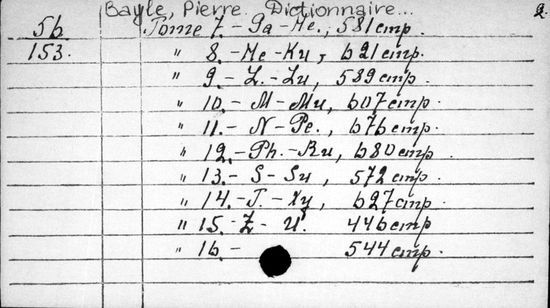 Bayle, Pierre Dictionnaire... 2
56 Tome 7. - Ga - He., 581 cmp.
153. " 8. - He - Ku, 621 cmp.
" 9. - L. - Lu, 589 cmp.
" 10. - M - Mu, 607 cmp.
" 11. - N - Pe., 676 cmp.
" 12. - Ph. - Ru, 680 cmp.
" 13. - S - Su, 572 cmp.
" 14. - T. - Xy, 627 cmp.
" 15. - Z - U. 446 cmp
" 16. - 544 cmp.